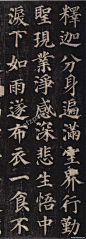 釋迦分身遍滿空界行勤
聖現業淨感深悲生悟中
淚下如雨遂布衣一食不